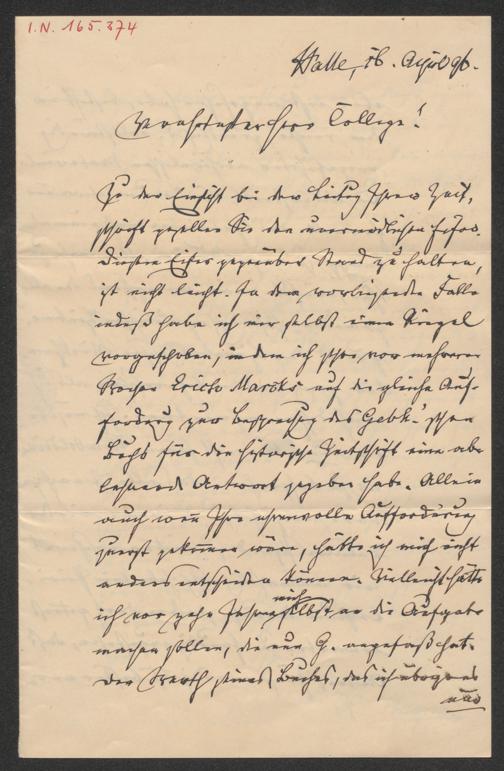 I.N. 165.374
Halle, 16. April 96.
Verehrtester Herr College!
Zu der Einsicht bei der Leitung Ihrer Zeit-
schrift gesellen Sie den unermüdlichen Eifer.
Diesem Eifer gegenüber Stand zu halten,
ist nicht leicht. In dem vorliegenden Falle
indeß habe ich mir selbst einen Riegel
vorgeschoben, indem ich schon vor mehreren
Wochen Erich Marcks auf die gleiche Auf-
forderung zur Besprechung des Gebh.'schen
Buchs für die historische Zeitschrift eine ab-
lehnende Antwort gegeben habe. Allein
auch wenn Ihre ehrenvolle Aufforderung
zuerst gekommen wäre, hätte ich mich nicht
anders entscheiden können. Vielleicht hätte
ich vor zehn Jahren mich selbst an die Aufgabe
machen sollen, die nun G. angefaßt hat.
Den Werth seines Buches, das ich übrigens
nur